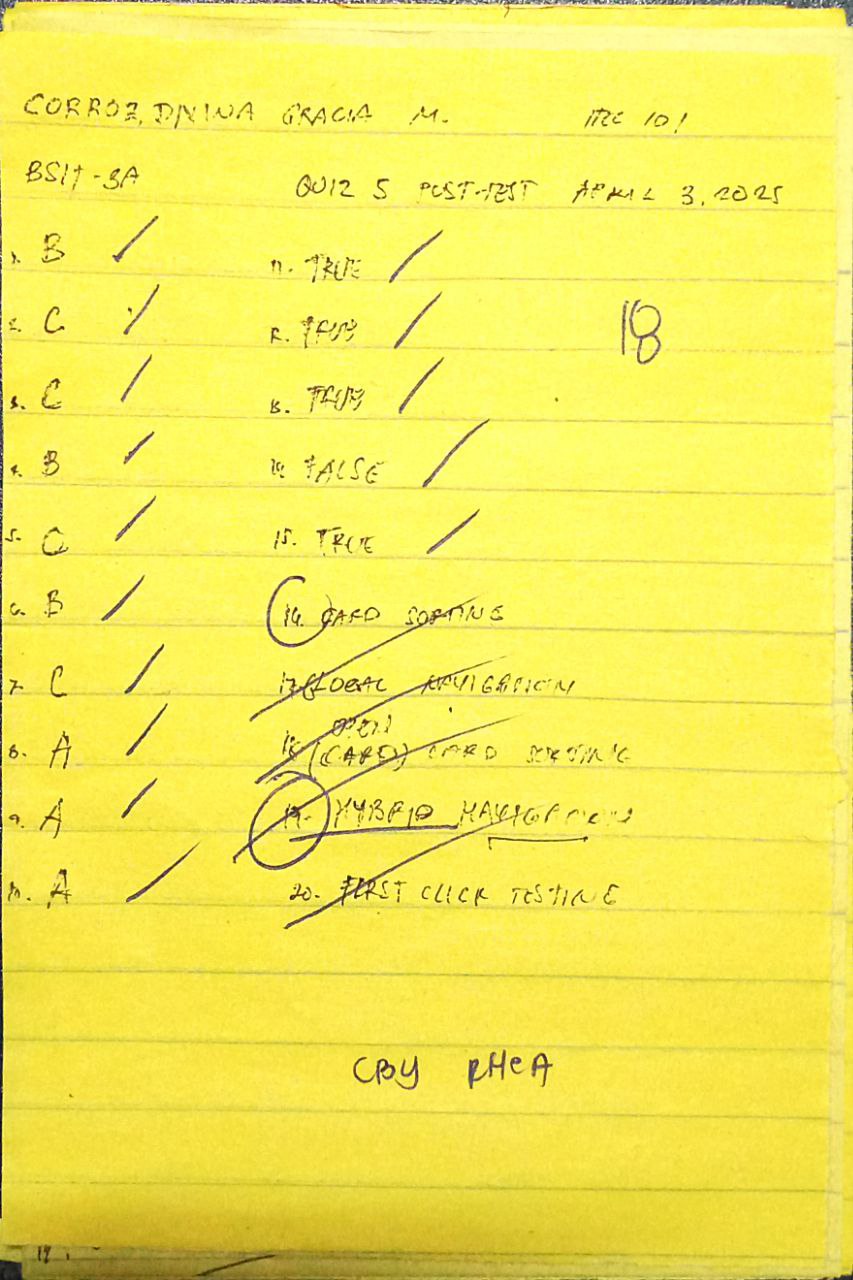 CORROZ, DIVINA GRACIA M. ITEC 101
BSIT-3A QUIZ 5 POST-TEST APRIL 3, 2025
1. B
2. C
3. C
4. B
5.
6. B
7. C
8. A
9. A
10. A
11. TRUE
12. TRUE
13. TRUE
14. FALSE
15. TRUE
18
16. CARD SORTING
17. GLOBAL NAVIGATION
OPEN
18. (CARD) CARD SORTING
19. HYBRID NAVIGATION
20. FIRST CLICK TESTING
CBY RHEA